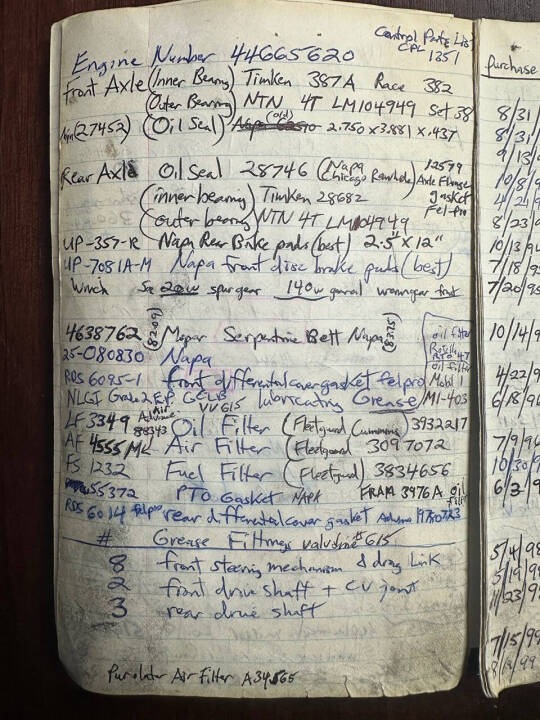 Control Parts List
CPL 1351
Engine Number 44665620
Front Axle (Inner Bearing) Timken 387A Race 382
(Outer Bearing) NTN 4T LM104949 Set 38
(27452) (Oil Seal) (old) 2.750 x 3.881 x .437
Rear Axle Oil Seal 28746 (Napa Chicago Rawhide) 12599 Axle Flange gasket Fel-Pro
(inner bearing) Timken 28682
(outer bearing) NTN 4T LM104949
UP-357-R Napa Rear Brake pads (best) 2.5" x 12"
UP-7081A-M Napa front disc brake pads (best)
Winch 20w spur gear 140w
4638762 (82.09) Mopar Serpentine Belt Napa (83.75)
25-080830 Napa
RDS 6095-1 front differential cover gasket felpro
NLGI Grade 2 E.P. GC-LB lubricating Grease
VV615
oil filter
oil filter
Mobil 1
M1-403
LF3349 88343 Oil Filter (Fleetguard Cummins) 3932217
AF4555M Air Filter (Fleetguard) 3097072
FS1232 Fuel Filter (Fleetguard) 3834656
55372 PTO Gasket NAPA FRAM 3976A oil filter
RDS 6014 felpro rear differential cover gasket
# Grease Fittings valvoline #615
8 front steering mechanism & drag link
2 front drive shaft + CV joint
3 rear drive shaft
Purolator Air Filter A34565
purchase
8/31
8/31
9/13
10/8/9
4/21/9
8/23/9
10/13/94
7/18/95
7/20/95
10/14/9
4/22/9
6/18/96
7/9/9
10/30/9
6/3/9
5/4/98
5/19/99
11/23/99
7/15/99
8/13/99